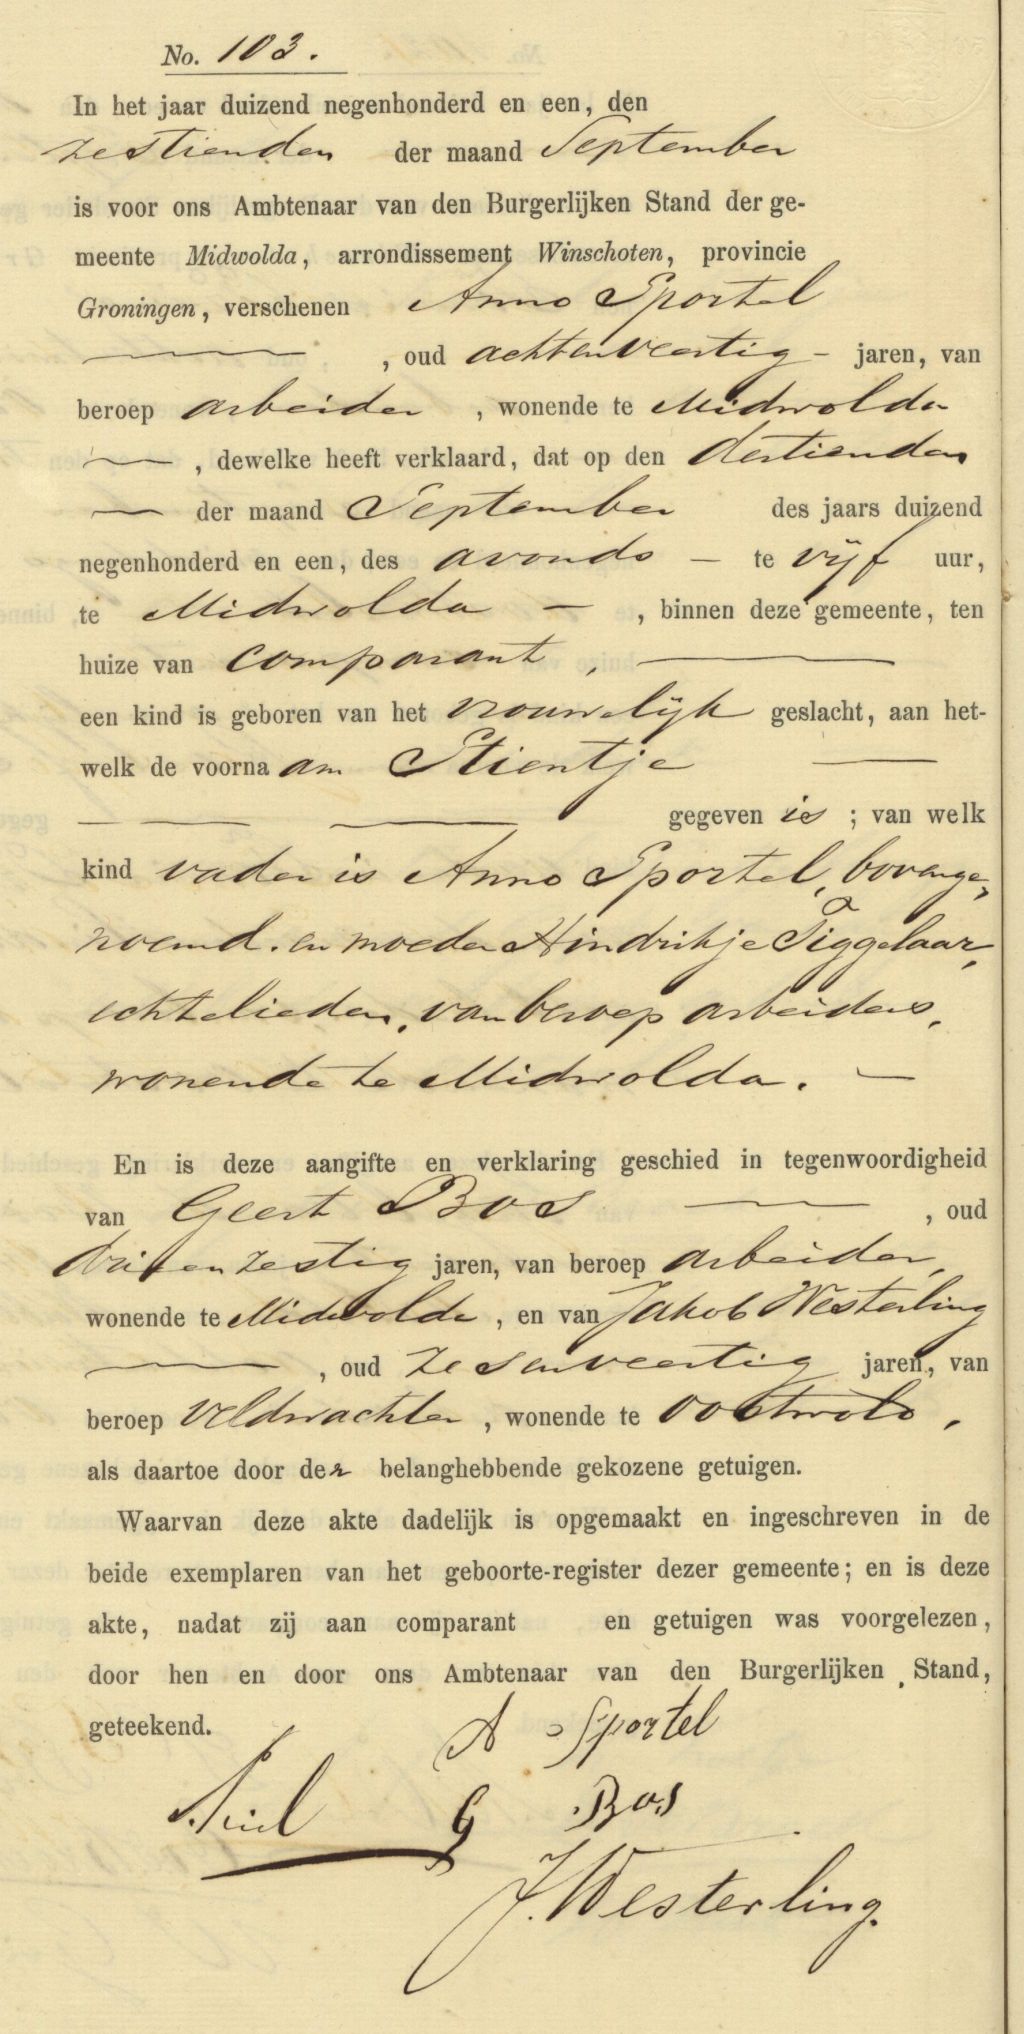 No. 103.
In het jaar duizend negenhonderd en een, den
zestienden der maand September
is voor ons Ambtenaar van den Burgerlijken Stand der ge-
meente Midwolda, arrondissement Winschoten, provincie
Groningen, verschenen Anno Sportel
, oud achtenveertig - jaren, van
beroep arbeider , wonende te Midwolda
— , dewelke heeft verklaard, dat op den dertienden
— der maand September des jaars duizend
negenhonderd en een, des avonds — te vijf uur,
te Midwolda — , binnen deze gemeente, ten
huize van comparant ,
een kind is geboren van het vrouwelijk geslacht, aan het-
welk de voornaam Stientje
gegeven is ; van welk
kind vader is Anno Sportel, bovenge-
noemd. en moeder Hindrikje Tiggelaar,
echtelieden, van beroep arbeiders,
wonende te Midwolda. —
En is deze aangifte en verklaring geschied in tegenwoordigheid
van Geert Bos — , oud
drieenzestig jaren, van beroep arbeider,
wonende te Midwolda , en van Jakob Westerling
— , oud zesenveertig jaren, van
beroep veldwachter , wonende te Oostwold ,
als daartoe door der belanghebbende gekozene getuigen.
Waarvan deze akte dadelijk is opgemaakt en ingeschreven in de
beide exemplaren van het geboorte-register dezer gemeente; en is deze
akte, nadat zij aan comparant en getuigen was voorgelezen,
door hen en door ons Ambtenaar van den Burgerlijken Stand,
geteekend.
A Sportel
G Bos
J. Westerling.